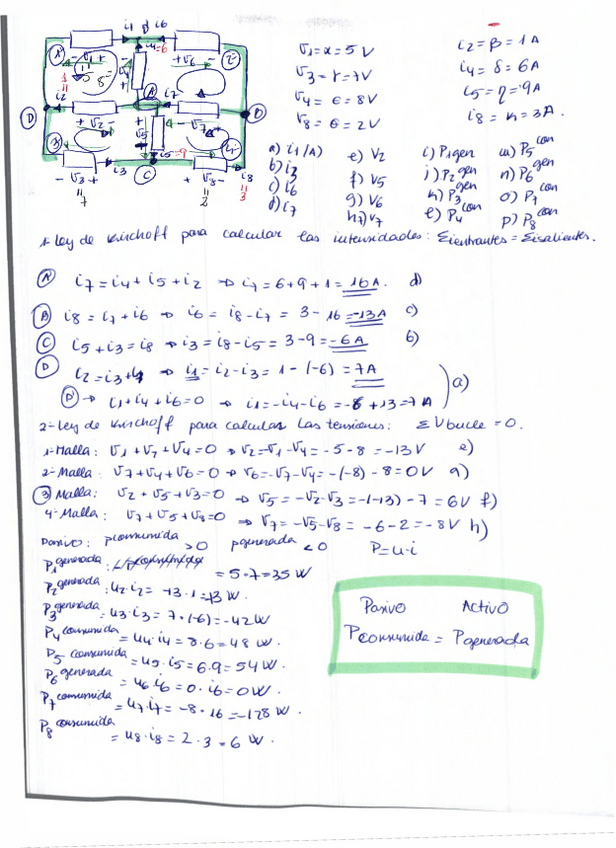 V1=α=5V
V3=γ=7V
V4=ϵ=8V
V8=θ=2V
i2=β=1A
i4=δ=6A
i5=η=9A
i8=κ=3A.
a) i1 (A)
b) i3
c) i6
d) i7
e) V2
f) V5
g) V6
h) V7
i) P1 gen
j) P2 gen
k) P3 gen
l) P4 con
m) P5 con
n) P6 gen
o) P7 con
p) P8 con
1-Ley de Kirchoff para calcular las intensidades: Σientrantes = Σisalientes.
A i7=i4+i5+i2 → i7=6+9+1=16A. d)
B i8=i7+i6 → i6=i8-i7=3-16=-13A c)
C i5+i3=i8 → i3=i8-i5=3-9=-6A b)
D i2=i3+i1 → i1=i2-i3=1-(-6)=7A
D' → i1+i4+i6=0 → i1=-i4-i6=-6+13=7A a)
2-Ley de Kirchoff para calcular las tensiones: ΣVbucle=0.
1-Malla: V1+V2+V4=0 → V2=-V1-V4=-5-8=-13V e)
2-Malla: V7+V4+V6=0 → V6=-V7-V4=-(-8)-8=0V g)
3 Malla: V2+V5+V3=0 → V5=-V2-V3=-(-13)-7=6V f)
4-Malla: V7+V5+V8=0 → V7=-V5-V8=-6-2=-8V h)
Pasivo: pconsumida >0 pgenerada <0 P=u·i
P1 generada: =5·7=35W
P2 generada: u2·i2=-13·1=-13W.
P3 generada =u3·i3=7·(-6)=-42W
P4 consumida =u4·i4=8·6=48W.
P5 consumida =u5·i5=6·9=54W.
P6 generada =u6·i6=0·i6=0W.
P7 consumida =u7·i7=-8·16=-128W.
P8 consumida =u8·i8=2·3=6W.
Pasivo Activo
Pconsumida = Pgenerada